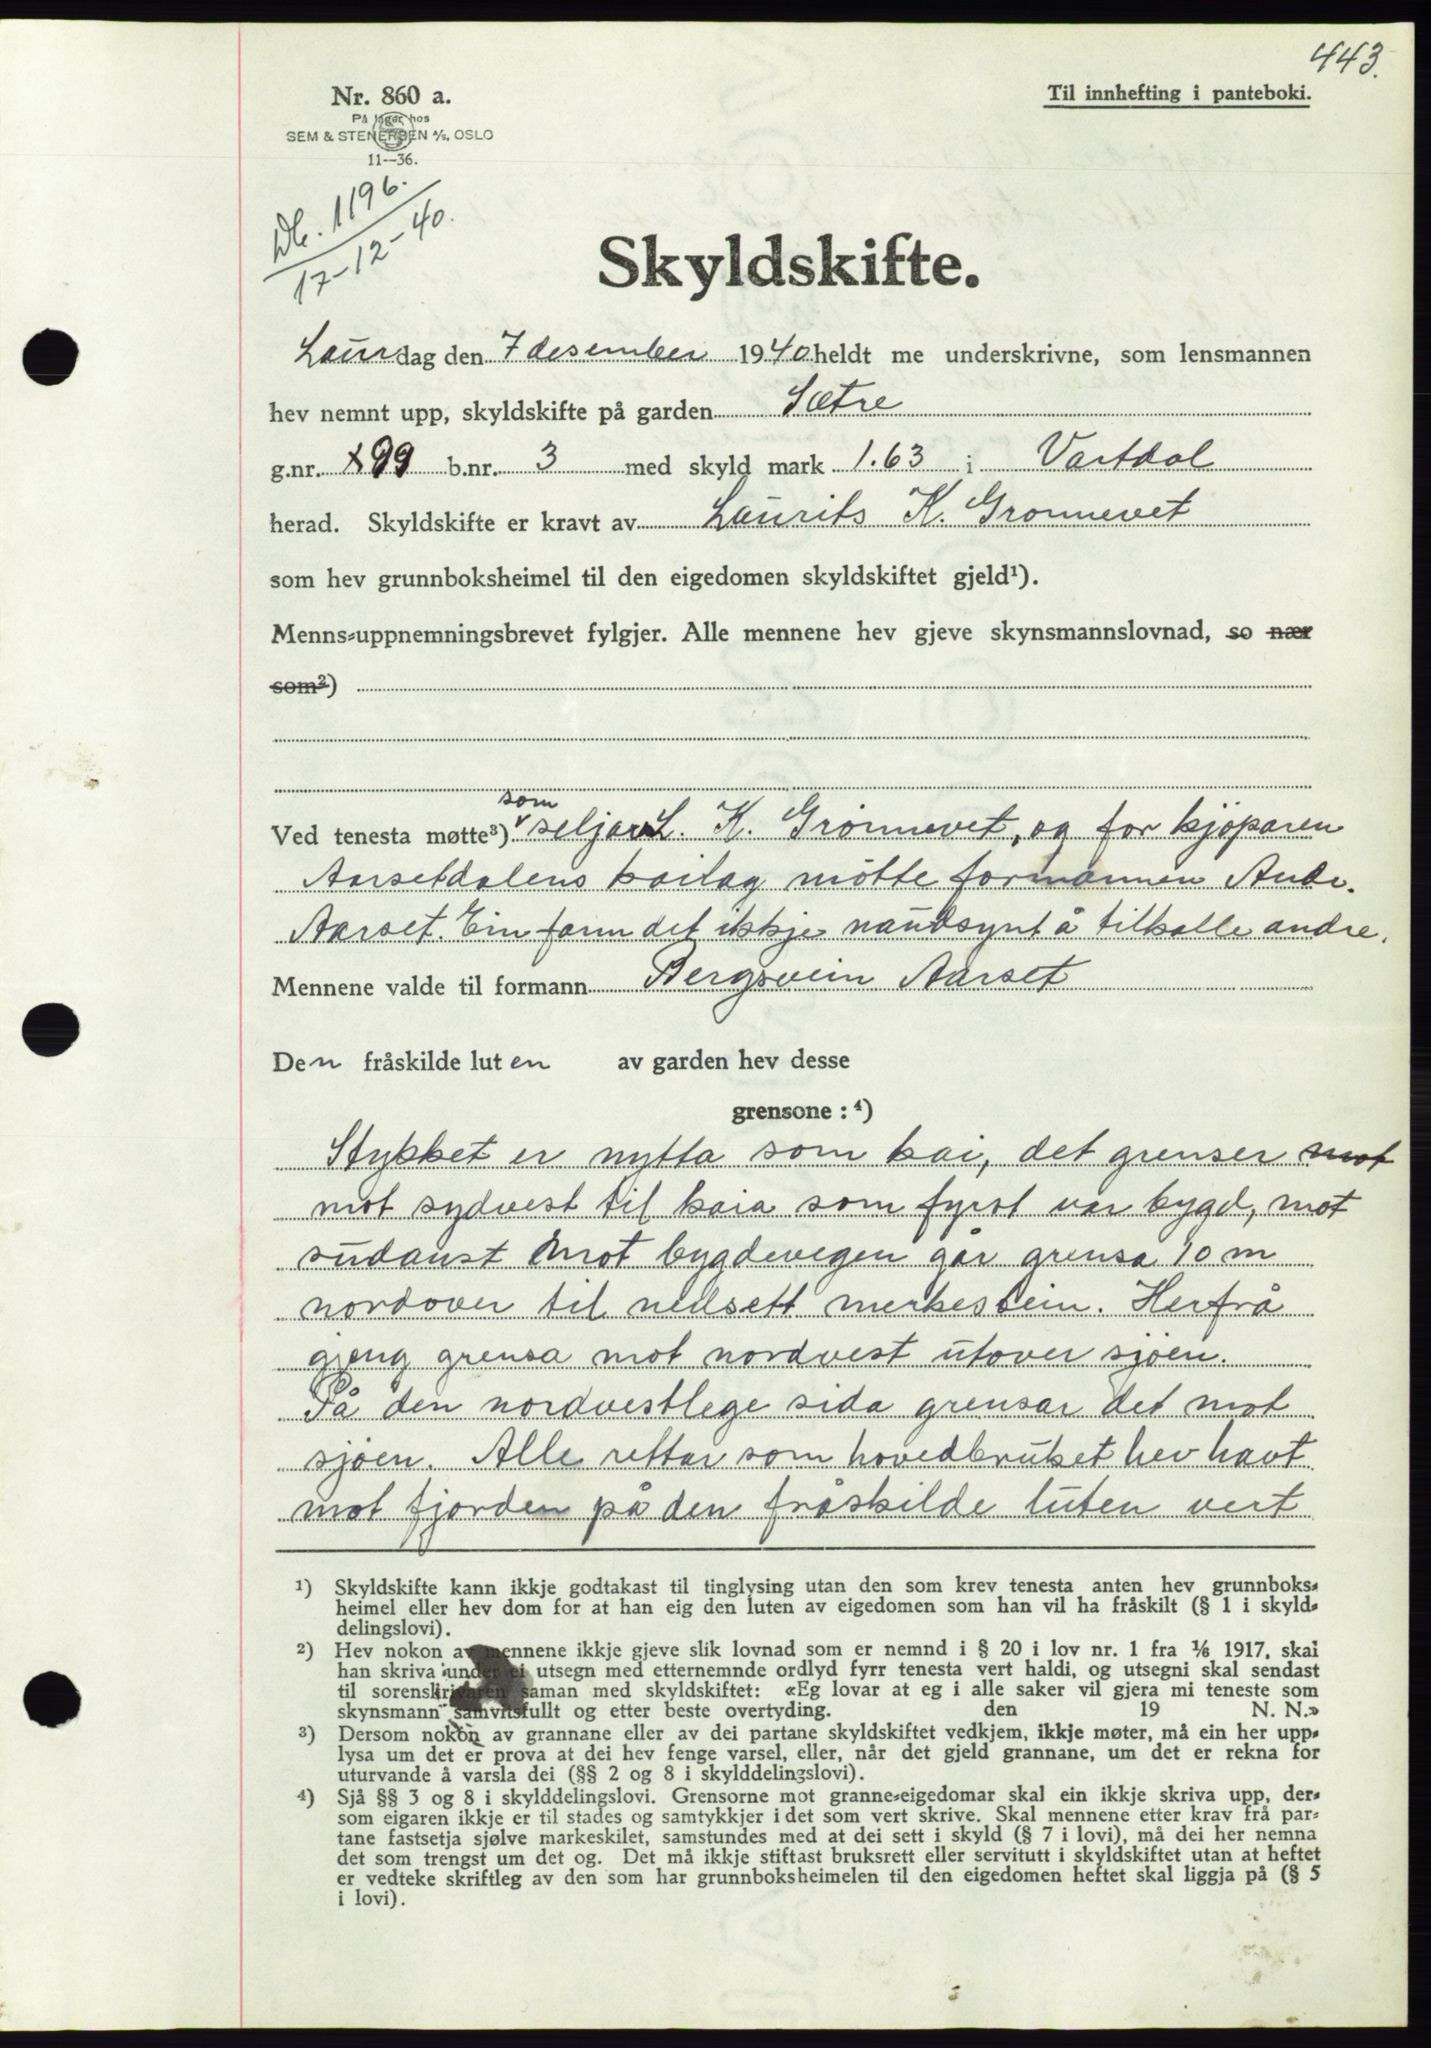 443.
Nr. 860 a.
På lager hos
SEM & STENERSEN A/S, OSLO
11—36.
Til innhefting i panteboki.
Db. 1196.
17-12-40.
Skyldskifte.
Laurdag den 7 desember 1940 heldt me underskrivne, som lensmannen
hev nemnt upp, skyldskifte på garden Sætre
g.nr. 99 b.nr. 3 med skyld mark 1.63 i Vartdal
herad. Skyldskifte er kravt av Laurits K. Grønnevet
som hev grunnboksheimel til den eigedomen skyldskiftet gjeld¹).
Menns-uppnemningsbrevet fylgjer. Alle mennene hev gjeve skynsmannslovnad, so nær
som²)
Ved tenesta møtte³) som seljar L. K. Grønnevet, og for kjöparen
Aarsetdalens kailag mötte formannen Andr.
Aarset. Ein fann det ikkje naudsynt å tilkalle andre.
Mennene valde til formann Bergsvein Aarset
Den fråskilde luten av garden hev desse
grensone : ⁴)
Stykket er nytta som kai, det grenser mot
mot sydvest til kaia som fyrst var bygd, mot
sudaust mot bygdevegen går grensa 10 m
nordover til nedsett merkestein. Herfrå
gjeng grensa mot nordvest utover sjøen.
På den nordvestlege sida grensar det mot
sjøen. Alle rettar som hovedbruket hev havt
mot fjorden på den fråskilde luten vert
¹) Skyldskifte kann ikkje godtakast til tinglysing utan den som krev tenesta anten hev grunnboks-
heimel eller hev dom for at han eig den luten av eigedomen som han vil ha fråskilt (§ 1 i skyld-
delingslovi).
²) Hev nokon av mennene ikkje gjeve slik lovnad som er nemnd i § 20 i lov nr. 1 fra ⅛ 1917, skal
han skriva under ei utsegn med etternemnde ordlyd fyrr tenesta vert haldi, og utsegni skal sendast
til sorenskrivaren saman med skyldskiftet: «Eg lovar at eg i alle saker vil gjera mi teneste som
skynsmann samvitsfullt og etter beste overtyding. den 19 N. N.»
³) Dersom nokon av grannane eller av dei partane skyldskiftet vedkjem, ikkje møter, må ein her upp-
lysa um det er prova at dei hev fenge varsel, eller, når det gjeld grannane, um det er rekna for
uturvande å varsla dei (§§ 2 og 8 i skylddelingslovi).
⁴) Sjå §§ 3 og 8 i skylddelingslovi. Grensorne mot granne-eigedomar skal ein ikkje skriva upp, der-
som eigaren ikkje er til stades og samtykkjer i det som vert skrive. Skal mennene etter krav frå par-
tane fastsetja sjølve markeskilet, samstundes med at dei sett i skyld (§ 7 i lovi), må dei her nemna
det som trengst um det og. Det må ikkje stiftast bruksrett eller servitutt i skyldskiftet utan at heftet
er vedteke skriftleg av den som har grunnboksheimelen til den eigedomen heftet skal liggja på (§ 5
i lovi).